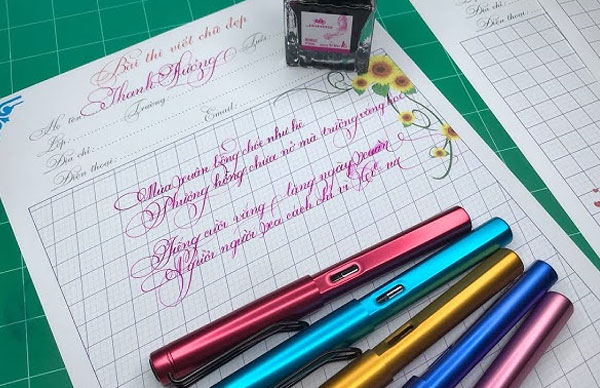 Bài thi viết chữ đẹp
Họ tên: Thanh Hương Tuổi:
Lớp: Trường:
Địa chỉ: Email:
Điện thoại:
Mùa xuân bỗng chói như hè
Phượng hồng chưa nở mà trường vắng hoe
Tiếng cười vắng lặng ngày xuân
Người người xa cách chỉ vì
Địa chỉ:
Điện thoại: